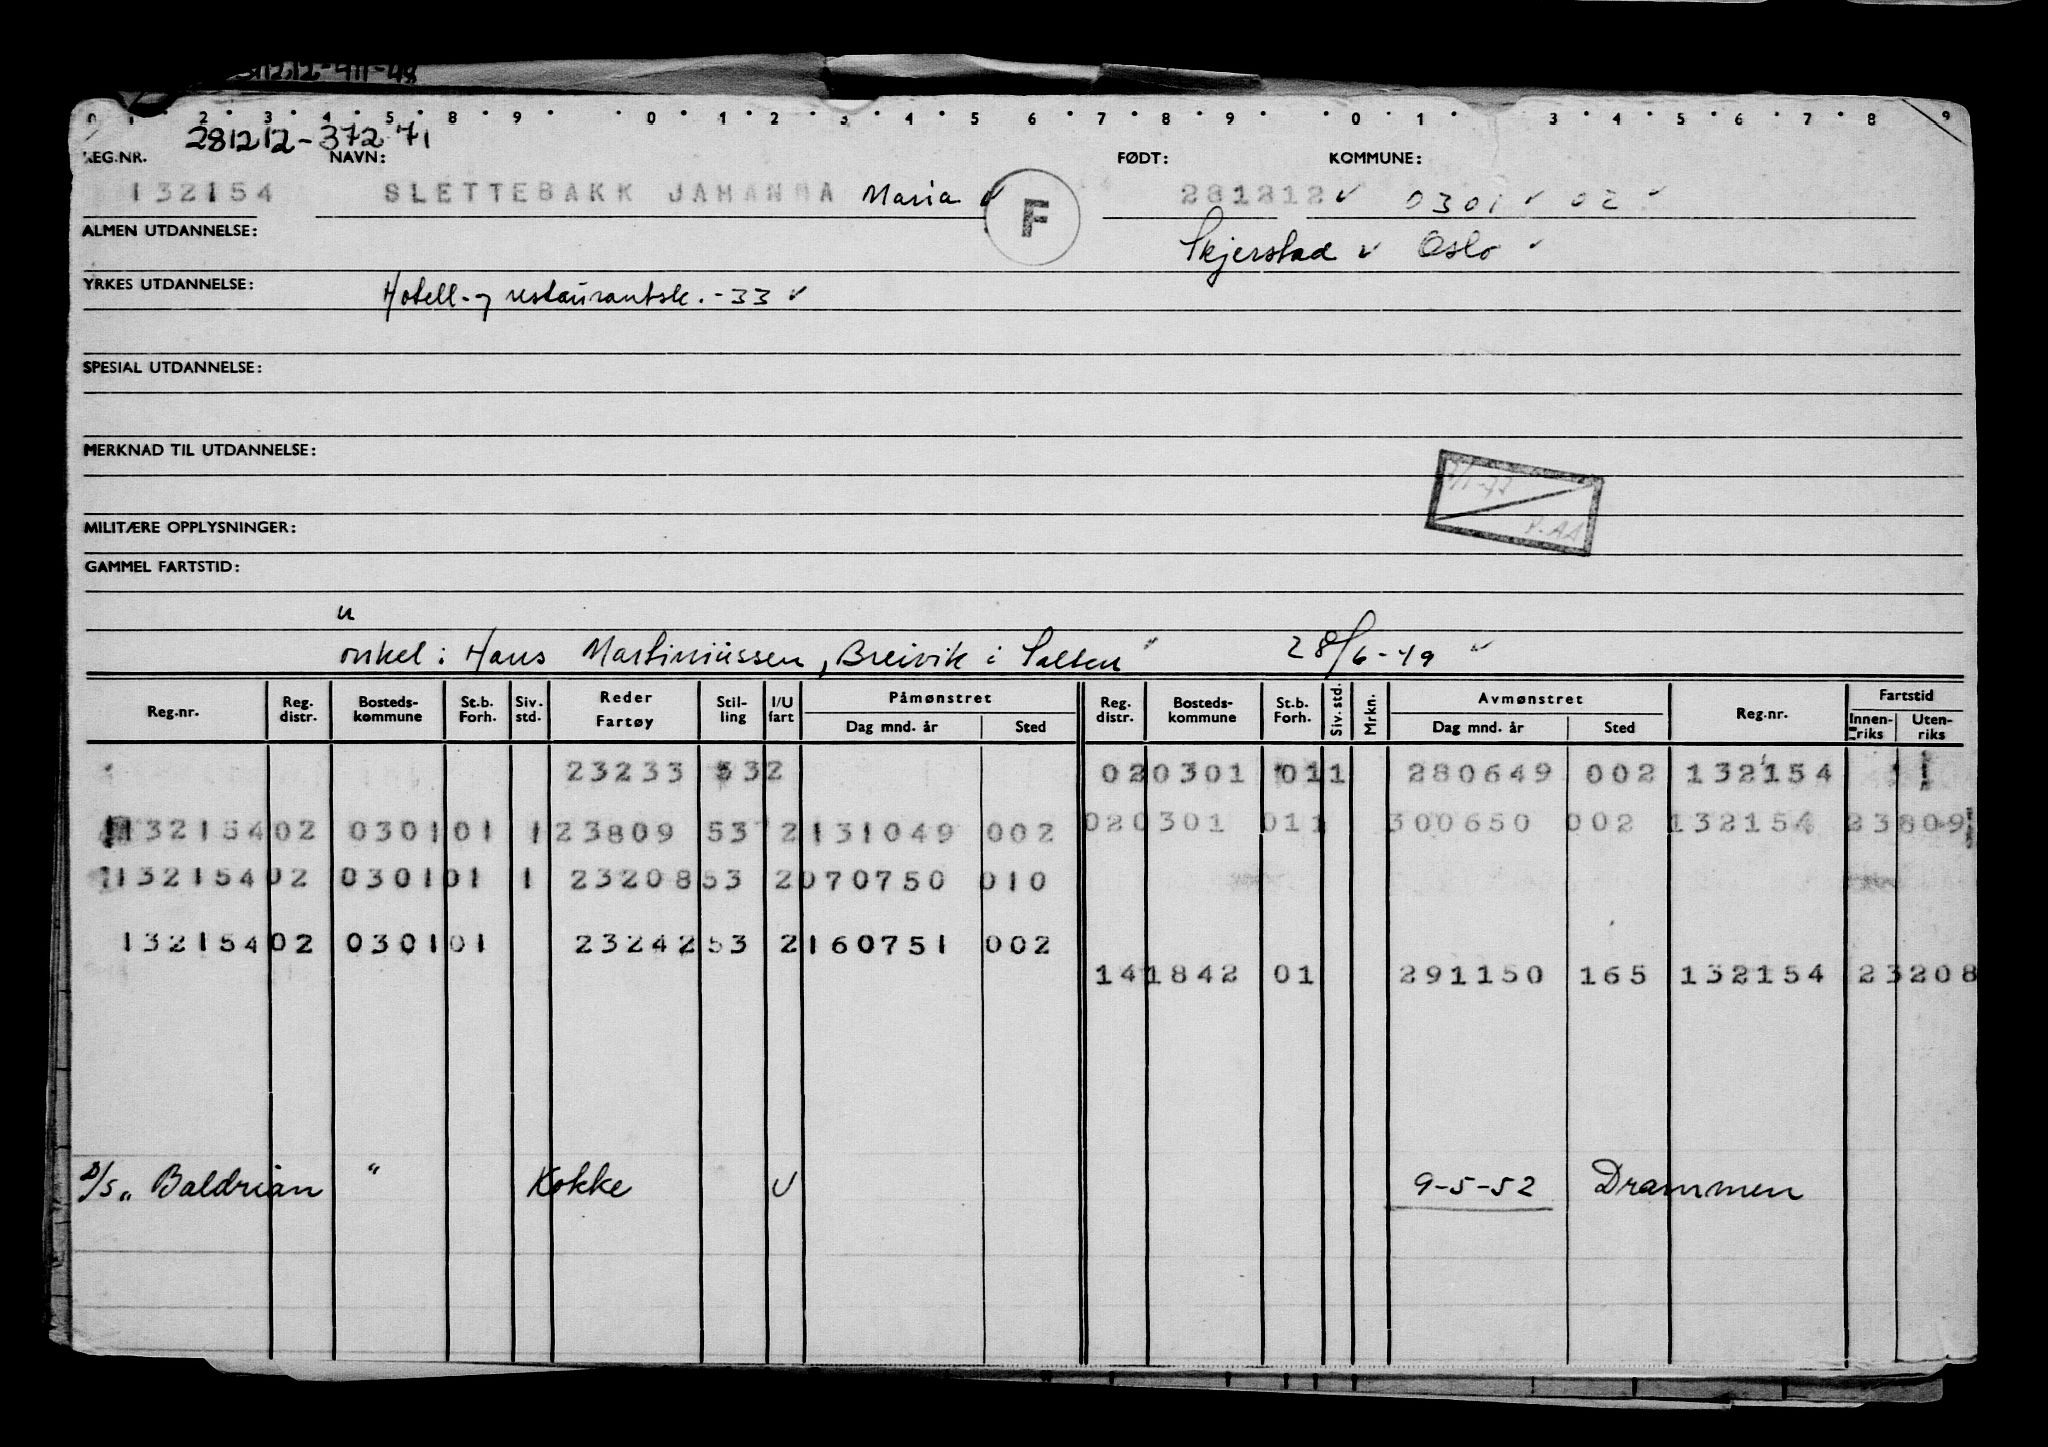 281212-411-48
0 1 2 3 4 5 8 9 0 1 2 3 4 5 6 7 8 9 0 1 3 4 5 6 7 8 9
281212-372 71
REG.NR. NAVN: FØDT: KOMMUNE:
132154 SLETTEBAKK JAHANNA Maria F 281212 0301 02
ALMEN UTDANNELSE: Skjerstad Oslo
YRKES UTDANNELSE: Hotell- og restaurantsk. -33
SPESIAL UTDANNELSE:
MERKNAD TIL UTDANNELSE:
MILITÆRE OPPLYSNINGER:
GAMMEL FARTSTID:
u
onkel: Hans Martiniussen, Breivik i Salten " 28/6-49 "
Reg.nr. Reg. distr. Bosteds-kommune St.b. Forh. Siv. std. Reder Fartøy Stil-ling I/U fart Påmønstret Dag mnd. år Sted Reg. distr. Bosteds-kommune St.b. Forh. Siv. std. Mrkn. Avmønstret Dag mnd. år Sted Reg.nr. Fartstid Innen-riks Uten-riks
23233 532 02 0301 01 1 280649 002 132154
132154 02 0301 01 1 23809 53 2 131049 002 02 0301 01 1 300650 002 132154 23809
132154 02 0301 01 1 23208 53 2 070750 010
132154 02 0301 01 23242 53 2 160751 002
14 1842 01 291150 165 132154 23208
D/S „Baldrian" Kokke U 9-5-52 Drammen